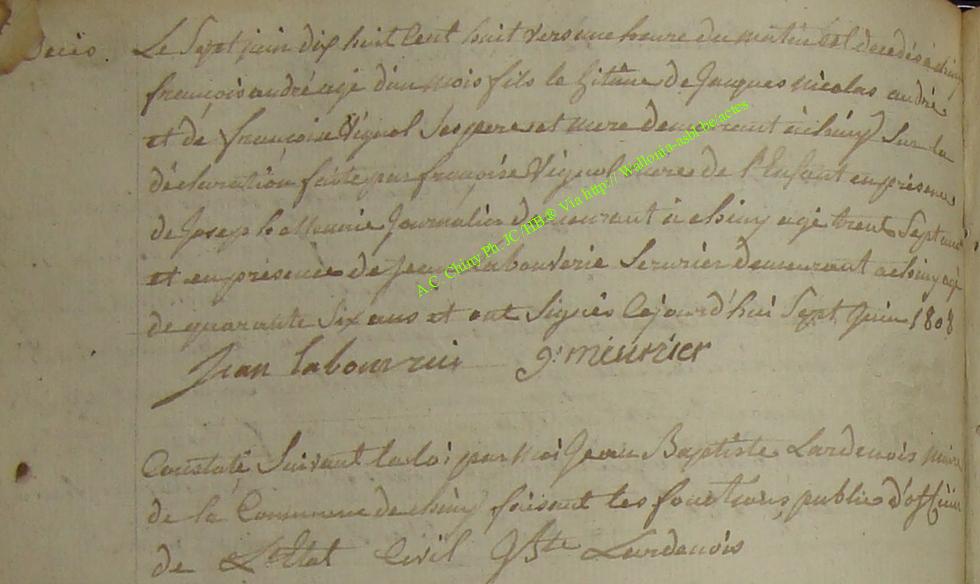 Deces. Le Sept juin dix huit Cent huit vers une heure du matin est decedés a chiny
françois andré agé d'un mois fils le gitime de Jacques nicolas andré
et de françoise Vignol Ses pere et mere demeurant a chiny Sur la
déclaration faite par françoise Vignol mere de l'Enfant en présence
de Joseph Journalier demeurant a chiny agé trent Sept ans
et en présence de Jean labouverie Serurier demeurant a chiny agé
de quarante Six ans et ont Signés Cejourd'hui Sept Juin 1808
Jean labouvrie g: meunier
A.C. Chiny Ph. JC /HB® Via http:// Wallonia-asbl.be/actes
Constaté Suivant la loi par moi Jean Baptiste Lardenois maire
de la Commune de chiny faisant les fonctions public d'officier
de L'Etat Civil JBte Lardenois